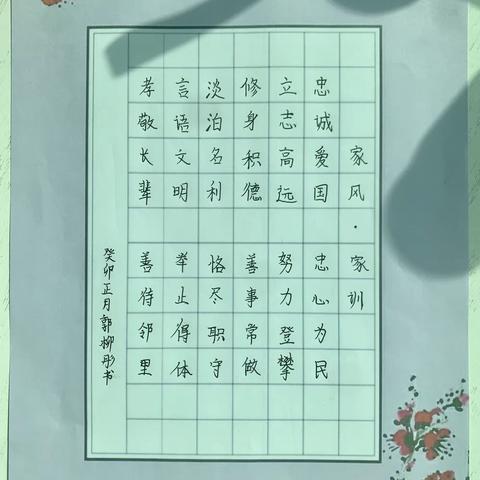 家风·家训
忠诚爱国忠心为民
立志高远努力登攀
修身积德善事常做
淡泊名利恪尽职守
言语文明举止得体
孝敬长辈善待邻里
癸卯正月郭柳彤书